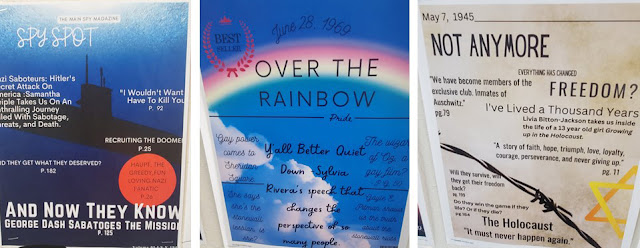 THE MAIN SPY MAGAZINE
SPY SPOT
azi Saboteurs: Hitler's
ecret Attack On
merica :Samantha
eiple Takes Us On An
nthralling Journey
illed With Sabotage,
hreats, and Death.
"I Wouldn't Want
Have To Kill You
P. 92
RECRUITING THE DOOME
P.25
D THEY GET WHAT THEY DESERVED?
P.182
HAUPT, THE
GREEDY,FUN
LOVING,NAZI
FANATIC
P.26
AND NOW THEY KNOW
GEORGE DASH SABOTAGES THE MISSIO
P.125
June 28, 1969
BEST
SELLER
OVER THE
RAINBOW
Pride
Gay power
comes to
Sheridan
Square
Y'all Better Quiet
Down -Sylvia
Rivera's speech that
changes the
perspective of so
many people.
The wizard
of Oz, a
gay film?
She says
the
stonewall
is
NOT ANYMORE
May 7, 1945
EVERYTHING HAS CHANGED
FREEDOM?
"We have become members of the
exclusive club. Inmates of
Auschwitz."
pg.79
I've Lived a Thousand Years
Livia Bitton-Jackson takes us inside
the life of a 13 year old girl Growing
up in the Holocaust.
"A story of faith, hope, triumph, love, loyalty,
courage, perseverance, and never giving up."
pg. 11
Will they survive, will
they get their freedom
back?
Do they win the game if they
die? Or if they die?
The Holocaust
"It must never happen again."